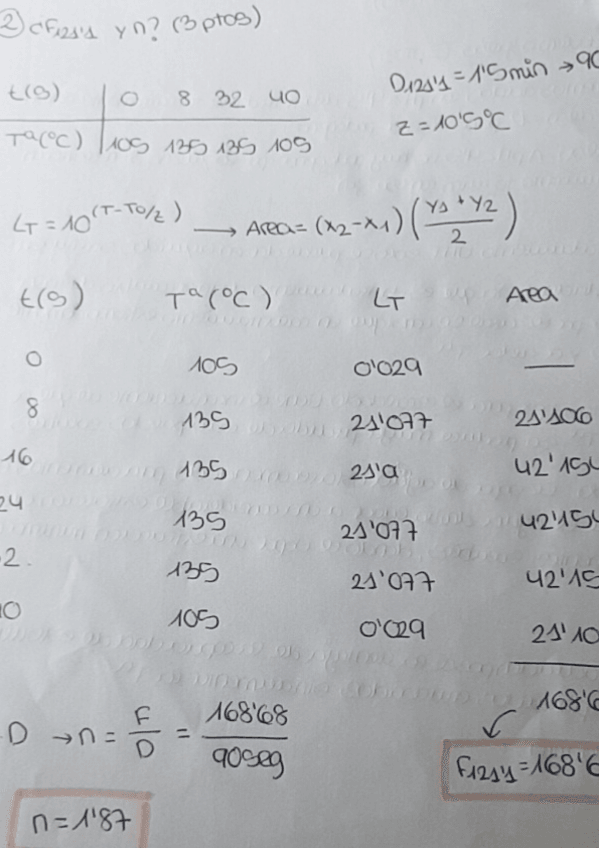 ② ¿F121'1 y n? (3 ptos)
D121'1 = 1'5 min → 90
t(s) 0 8 32 40
z = 10'5°C
Tª(°C) 105 135 135 105
LT = 10^(T-To/z) → Area = (x2-x1) (y1 + y2 / 2)
t(s) Tª(°C) LT Area
0 105 0'029 —
8 135 21'077 21'106
16 135 21'9 42'154
24 135 21'077 42'154
2. 135 21'077 42'15
0 105 0'029 21'10
168'6
D → n = F/D = 168'68/90seg
F121'1 = 168'6
n = 1'87